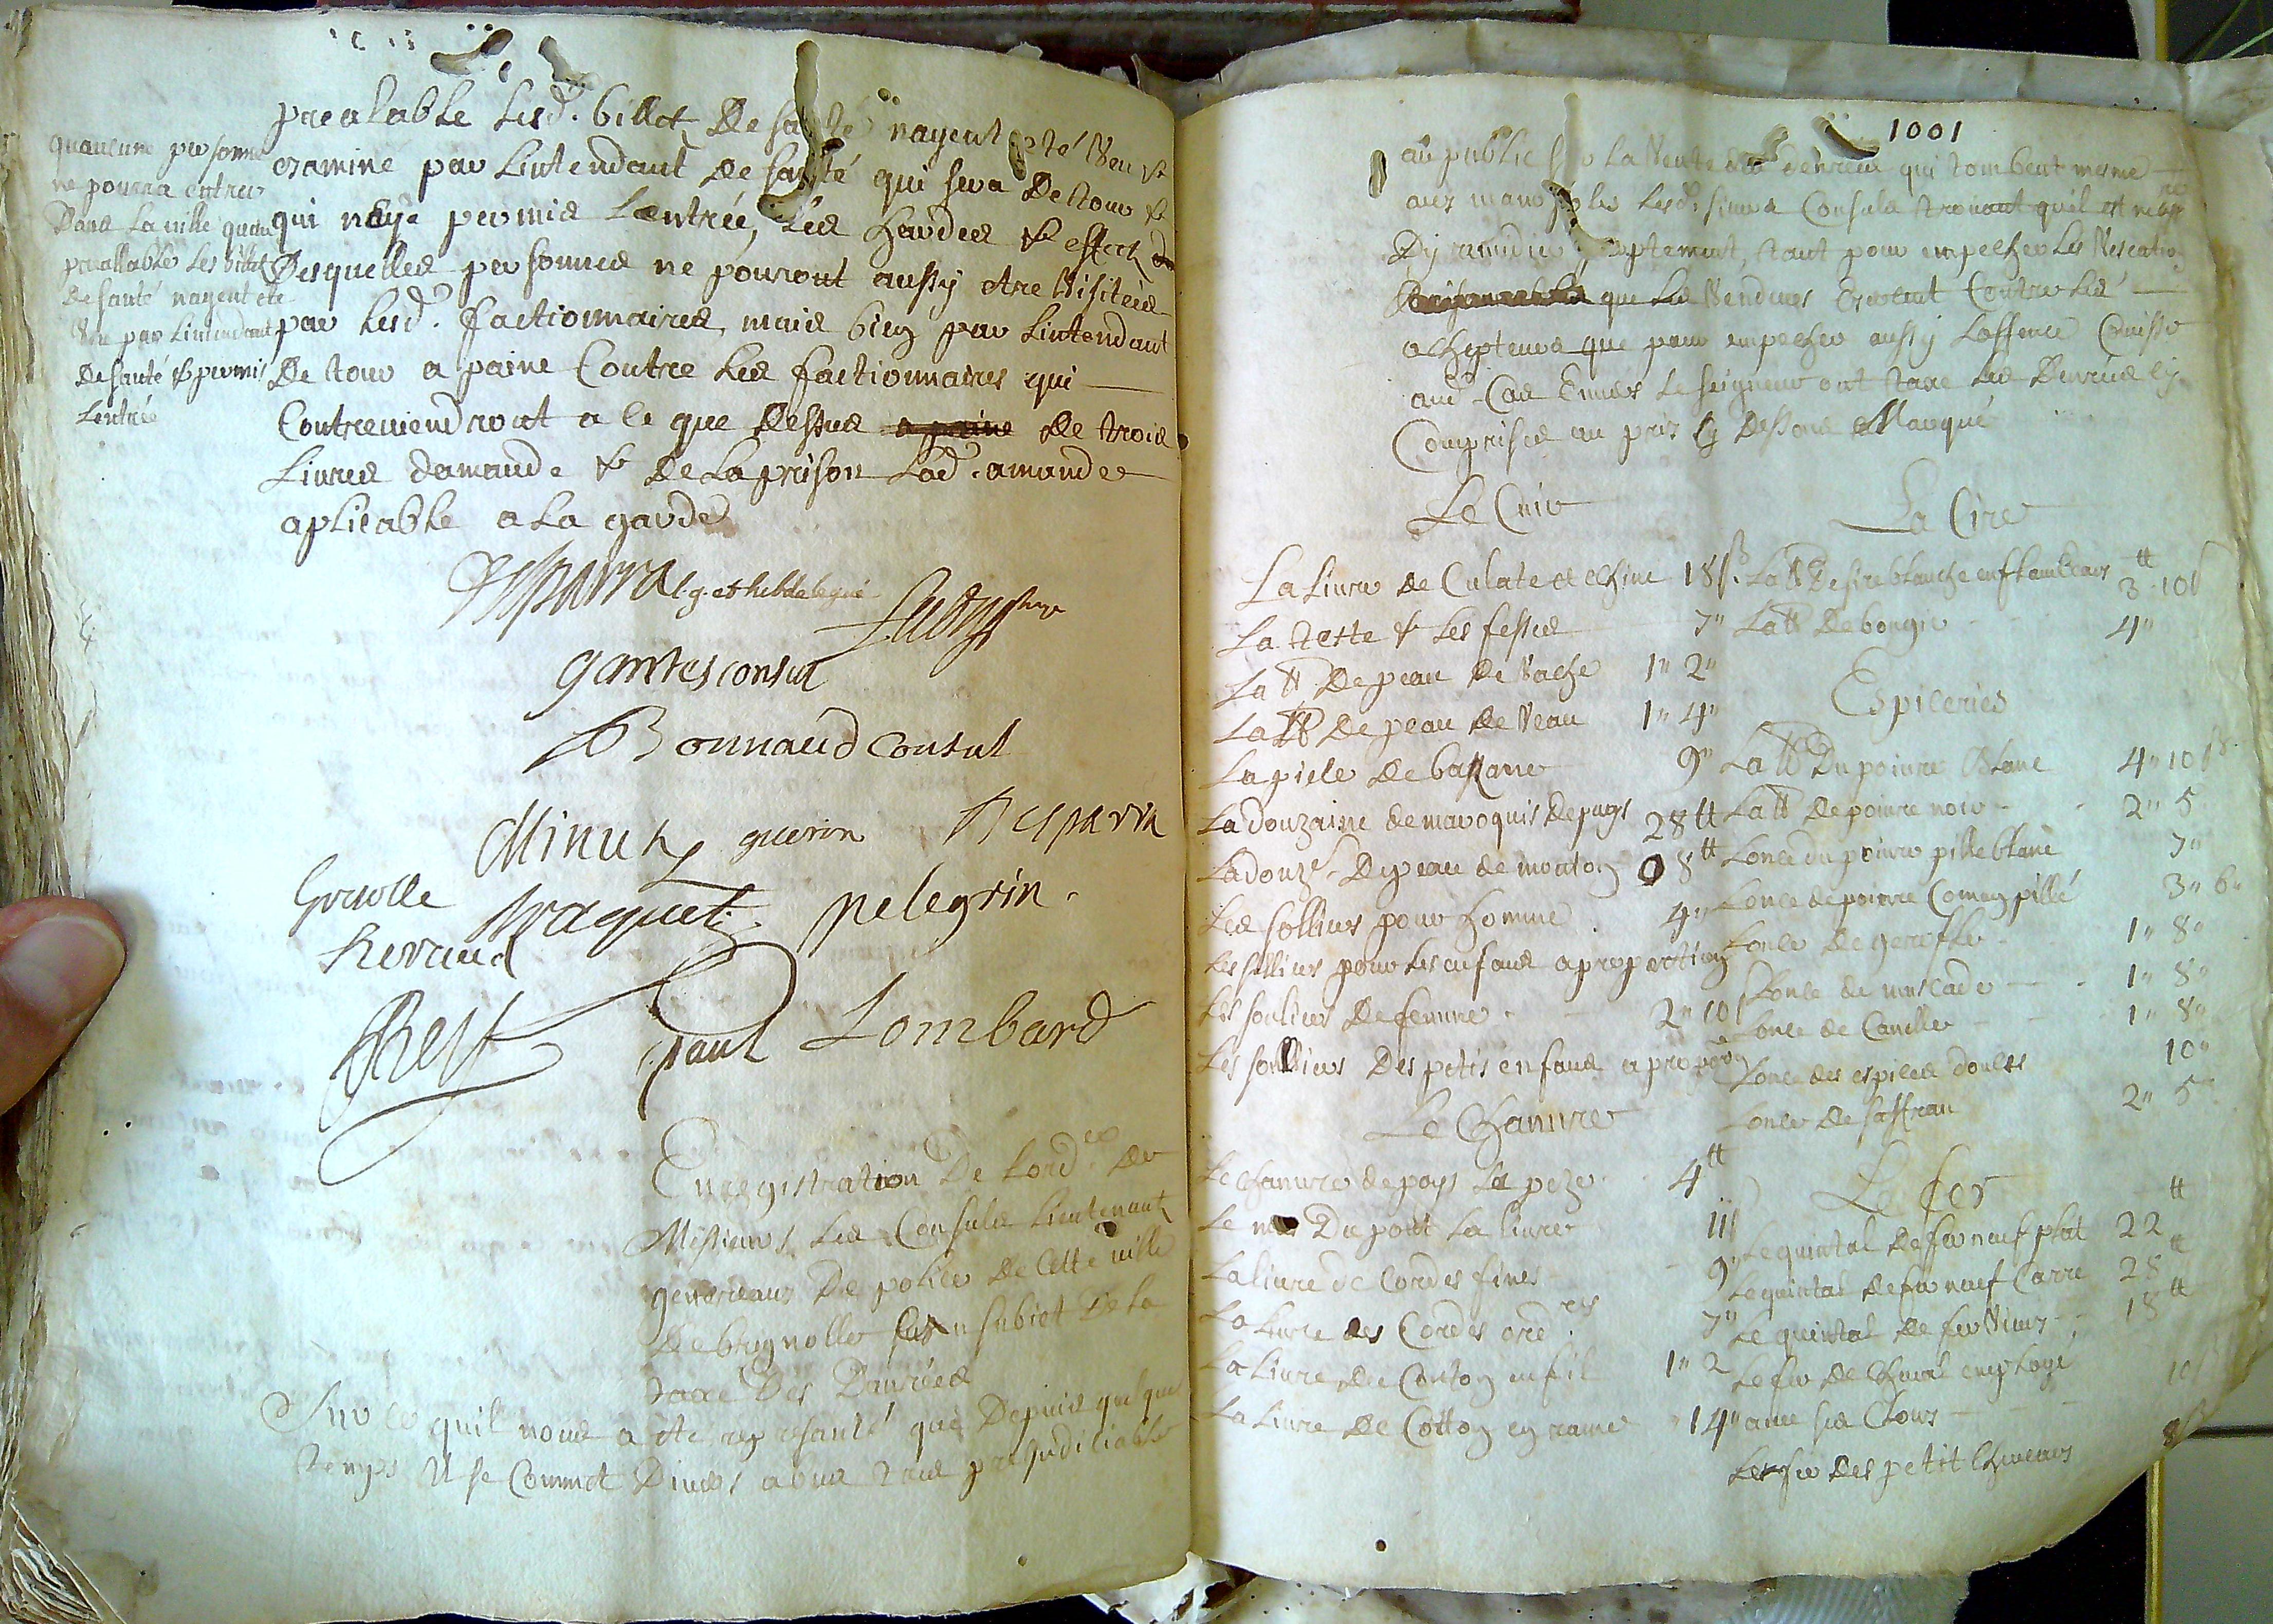 quaucune personne
ne pourra entrer
Dans La ville quau
preallable Les billets
De santé nayent eté
Veu par Lintendant
De santé & permis
Lentrée
prealable Lesd. billets De santé nayent eté Veu &
examiné par Lintendant De santé qui sera De tour &
qui naye permis Lentrée, Les hardes & effects
Desquelles personnes ne pouront aussy etre Visitées
par Lesd. factionnaires, mais bien par Lintendant
De tour a paine Contre Les factionnaires qui
Contreviendront a Ce que Dessus a paine De trois
Livres damande & De La prison Lad. amande
aplicable a La garde
gantes consul
Bonnaud consul
Minuty guerin
Braquet pelegrin.
paul Lombard
Enregistration De Lord.ce De
Messieurs Les Consuls Lieutenants
generaux De police De Cette ville
De brignolle au subiet De La
taxe Des Danrées
Sur Ce quil nous a eté represanté que Depuis quelque
temps Il se Commet Divers abus tres prejudiciable
1001
au public sur La Vente des denrées qui tombent mesme
aux Lesd. sieurs Consuls trouvant quil est
Dy remedier promptement, tant pour empecher Les Vexations
que Les Vendeurs Exercent Contre Les
achepteurs que pour empecher aussy Loffence
aud. Cas Envers Le seigneur ont taxé Les Denrées Cy
Comprises au prix Cy Dessous Marqué
Le Cuir
La Livre de Culate et echine 18 s.
La teste & Les fesses 7"
La ₶ De peau De Vache 1" 2"
La ₶ De peau De Veau 1" 4"
La piele De basane 9"
La douzaine de maroquis De pays 28 ₶
La douz.e De peau de mouton 8 ₶
Les solliers pour homme 4"
Les solliers pour Les enfans a proportion
Les souliers De femme 2" 10 s
Les souliers Des petis enfans a propor.on
Le Chanvre
Le Chanvre de pays La peze 4 ₶
Le Du port La livre 11 s
La livre de Cordes fines 9"
La Livre des Cordes ord.res 7"
La Livre De Couton en fil 1" 2
La Livre De Cotton en rame 14"
La Cire
La ₶ De sire blanche en flambeaux 3 ₶ 10 s
La ₶ De bougie 4"
Espiceries
La ₶ Du poivre Blanc 4" 10 s.
La ₶ De poivre noir 2" 5
Lonce du poivre pillé blanc 7"
Lonce de poivre Comun pillé 3" 6"
Lonce De gerofle 1" 8"
Lonce de muscade 1" 8"
Lonce de Canelle 1" 8"
Lonce des espices douces 10"
Lonce De saffran 2" 5
Le fer
Le quintal De fer neuf plat 22 ₶
Le quintal De fer neuf Carré 28 ₶
Le quintal De fer Vieux 18 ₶
Le fer De Cheval employé
avec ses Clous 10 s
Le fer Des petit Chevaux 8 s